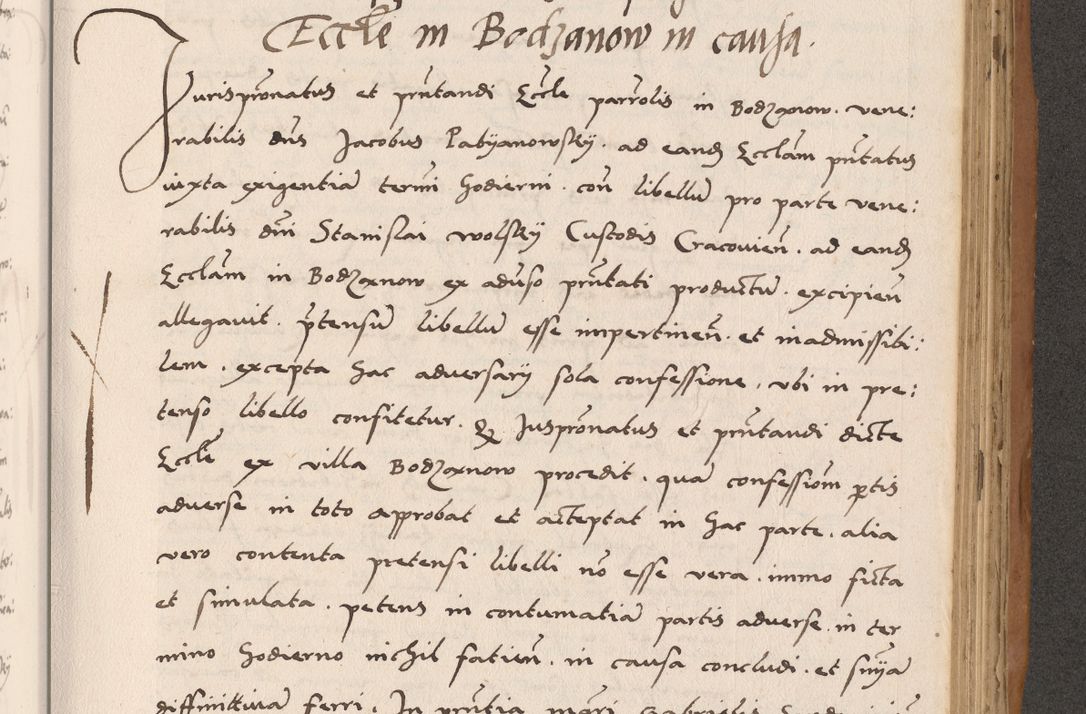 Eccłe in Bodzanow in causa.
Jurisprōnatus et prn̄tandi Eccłe parrōlis in Bodzanow. vene:
rabilis dn̄s Jacobus Pabyanowsky. ad eandȝ Ecclām prn̄tatus
iuxta exigentiā termī hodierni. con̄ libellū pro parte vene:
rabilis dn̄i Stanislai wolsky Custodis Cracovien̄. ad eandȝ
Ecclām in Bodzanow ex adūso prn̄tati productū. excipien̄
allegavit. p̄tensū libellū esse impertinen̄. et inadmissibi:
lem. excepta hac adversarij sola confessione, ubi in pre:
tenso libello confitetur. Qȝ Juspronatus et prn̄tandi dicte
Eccłe ex villa Bodzanow procedit. quā confessionē ptis
adverse in toto approbat et acceptat in hac parte. alia
vero contenta pretensi libelli nō esse vera. immo ficta
et simulata. petens in contumatiā partis adverse. in ter
mino hodierno nichil fatien̄. in causa concludi. et sn̄iā
diffinitivā ferri. In prn̄tia